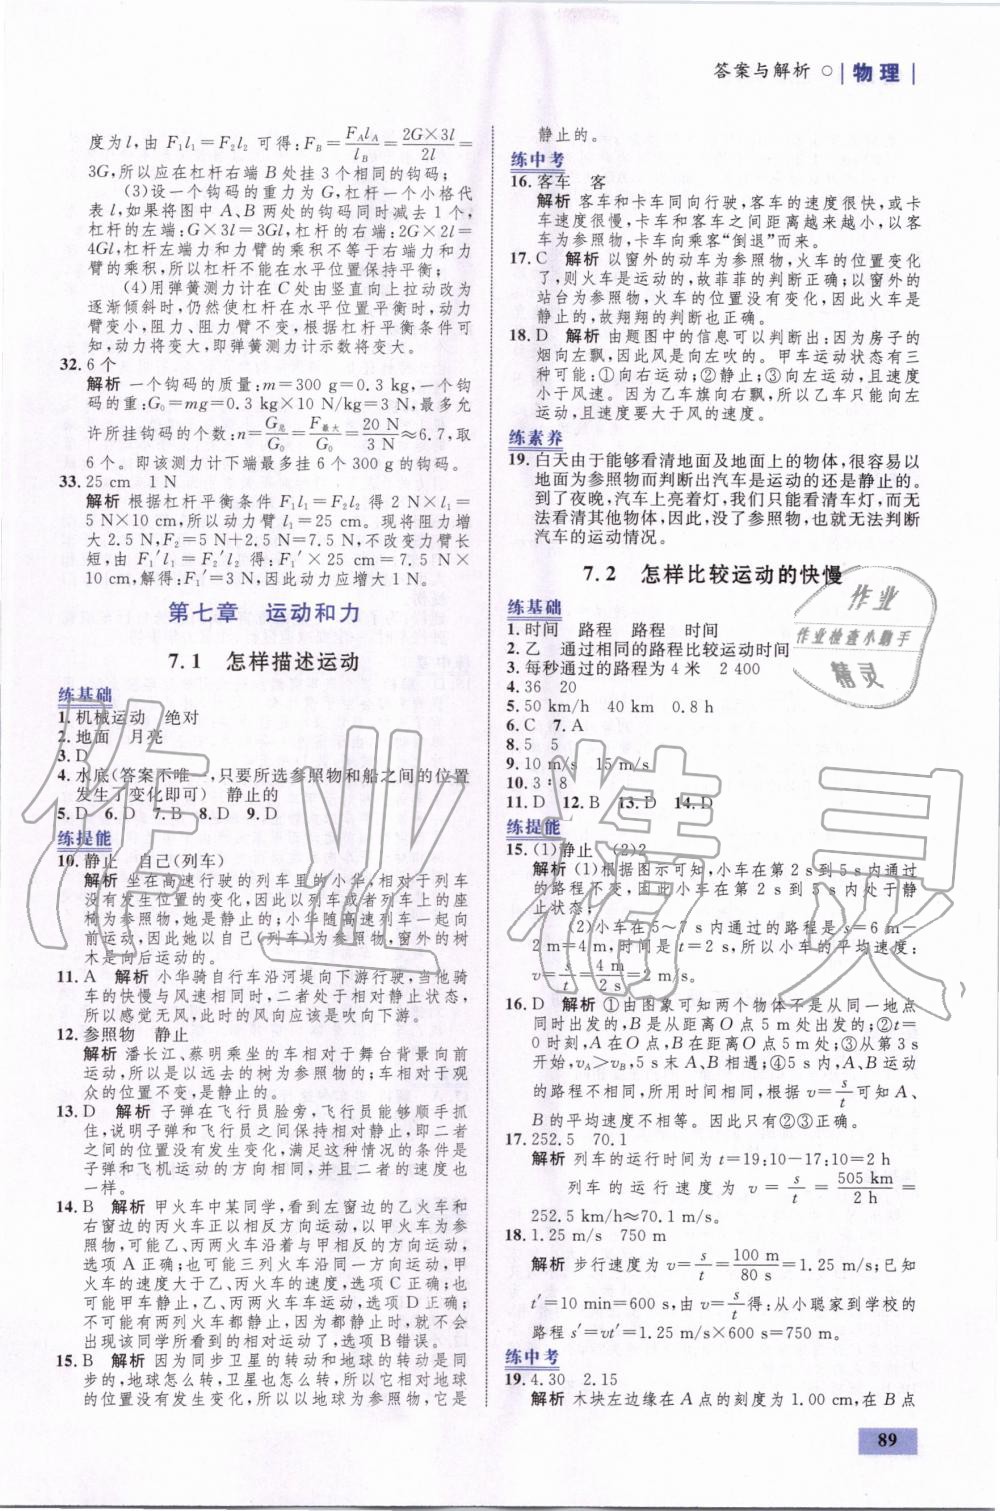 答案与解析 ○ 物理
度为l,由F₁l₁=F₂l₂可得:F_B=F_Al_A/l_B=2G×3l/2l=
3G,所以应在杠杆右端B处挂3个相同的钩码;
(3)设一个钩码的重力为G,杠杆一个小格代
表l,如果将图中A、B两处的钩码同时减去1个,
杠杆的左端:G×3l=3Gl,杠杆的右端:2G×2l=
4Gl,杠杆左端力和力臂的乘积不等于右端力和力
臂的乘积,所以杠杆不能在水平位置保持平衡;
(4)用弹簧测力计在C处由竖直向上拉动改为
逐渐倾斜时,仍然使杠杆在水平位置平衡时,动力
臂变小,阻力、阻力臂不变,根据杠杆平衡条件可
知,动力将变大,即弹簧测力计示数将变大。
32.6个
解析 一个钩码的质量:m=300 g=0.3 kg,一个钩
码的重:G₀=mg=0.3 kg×10 N/kg=3 N,最多允
许所挂钩码的个数:n=G总/G₀=F最大/G₀=20 N/3 N≈6.7,取
6个。即该测力计下端最多挂6个300 g的钩码。
33.25 cm 1 N
解析 根据杠杆平衡条件F₁l₁=F₂l₂得2 N×l₁=
5 N×10 cm,所以动力臂l₁=25 cm。现将阻力增
大2.5 N,F₂=5 N+2.5 N=7.5 N,不改变力臂长
短,由F₁′l₁=F₂′l₂得:F₁′×25 cm=7.5 N×
10 cm,解得:F₁′=3 N,因此动力应增大1 N。
第七章 运动和力
7.1 怎样描述运动
练基础
1.机械运动 绝对
2.地面 月亮
3.D
4.水底(答案不唯一,只要所选参照物和船之间的位置
发生了变化即可) 静止的
5.D 6.D 7.B 8.D 9.D
练提能
10.静止 自己(列车)
解析 坐在高速行驶的列车里的小华,相对于列车
没有发生位置的变化,因此以列车或者列车上的座
椅为参照物,她是静止的;小华随高速列车一起向
前运动,因此她以自己(列车)为参照物,窗外的树
木是向后运动的。
11.A 解析 小华骑自行车沿河堤向下游行驶,当他骑
车的快慢与风速相同时,二者处于相对静止状态,
所以感觉无风,此时的风向应该是吹向下游。
12.参照物 静止
解析 潘长江、蔡明乘坐的车相对于舞台背景向前
运动,所以是以远去的树为参照物的;而相对于观
众的位置不变,是静止的。
13.D 解析 子弹在飞行员脸旁,飞行员能够顺手抓
住,说明子弹与飞行员之间保持相对静止,即二者
之间的位置没有发生变化,满足这种情况的条件是
子弹和飞机运动的方向相同,并且二者的速度也
一样。
14.B 解析 甲火车中某同学,看到左窗边的乙火车和
右窗边的丙火车正以相反方向运动,以甲火车为参
照物,可能乙、丙两火车沿着与甲相反的方向运动,
选项A正确;也可能三列火车沿同一方向运动,甲
火车的速度大于乙、丙火车的速度,选项C正确;也
可能甲车静止,乙、丙两火车车运动,选项D正确;
不可能有两列火车都静止,因为都静止时,就不会
出现该同学所看到的相对运动了,选项B错误。
15.B 解析 因为同步卫星的转动和地球的转动是同
步的,地球怎么转,卫星怎么转,所以它相对地球的
位置没有发生变化,所以以地球为参照物,它是
静止的。
练中考
16.客车 客
解析 客车和卡车同向行驶,客车的速度很快,或卡
车速度很慢,卡车和客车之间距离越来越小,以客
车为参照物,卡车向乘客“倒退”而来。
17.C 解析 以窗外的动车为参照物,火车的位置变化
了,则火车是运动的,故菲菲的判断正确;以窗外的
站台为参照物,火车的位置没有变化,因此火车是
静止的,故翔翔的判断也正确。
18.D 解析 由题图中的信息可以判断出:因为房子的
烟向左飘,因此风是向左吹的。甲车运动状态有三
种可能:①向右运动;②静止;③向左运动,且速度
小于风速。因为乙车旗向右飘,所以乙车只能向左
运动,且速度要大于风的速度。
练素养
19.白天由于能够看清地面及地面上的物体,很容易以
地面为参照物而判断出汽车是运动的还是静止的。
到了夜晚,汽车上亮着灯,我们只能看清车灯,而无
法看清其他物体,因此,没了参照物,也就无法判断
汽车的运动情况。
7.2 怎样比较运动的快慢
练基础
1.时间 路程 路程 时间
2.乙 通过相同的路程比较运动时间
3.每秒通过的路程为4米 2 400
4.36 20
5.50 km/h 40 km 0.8 h
6.C 7.A
8.5 5
9.10 m/s 15 m/s
10.3∶8
11.D 12.B 13.D 14.D
练提能
15.(1)静止 (2)2
解析 (1)根据图示可知,小车在第2 s到5 s内通过
的路程不变,因此小车在第2 s到5 s内处于静
止状态;
(2)小车在5~7 s内通过的路程是s=6 m-
2 m=4 m,时间是t=2 s,所以小车的平均速度:
v=s/t=4 m/2 s=2 m/s。
16.D 解析 ①由图象可知两个物体不是从同一地点
同时出发的,B是从距离O点5 m处出发的;②t=
0时刻,A在O点,B在距离O点5 m处;③从第3 s
开始,v_A>v_B,5 s末A、B相遇;④5 s内,A、B运动
的路程不相同,所用时间相同,根据v=s/t可知A、
B的平均速度不相等。因此只有②③正确。
17.252.5 70.1
解析 列车的运行时间为t=19:10-17:10=2 h
列车的运行速度为v=s/t=505 km/2 h=
252.5 km/h≈70.1 m/s。
18.1.25 m/s 750 m
解析 步行速度为v=s/t=100 m/80 s=1.25 m/s;已知
t′=10 min=600 s,由v=s/t得:从小聪家到学校的
路程s′=vt′=1.25 m/s×600 s=750 m。
练中考
19.4.30 2.15
解析 木块左边缘在A点的刻度为1.00 cm,在B点
89
作业
作业检查小助手
精灵
作业精灵